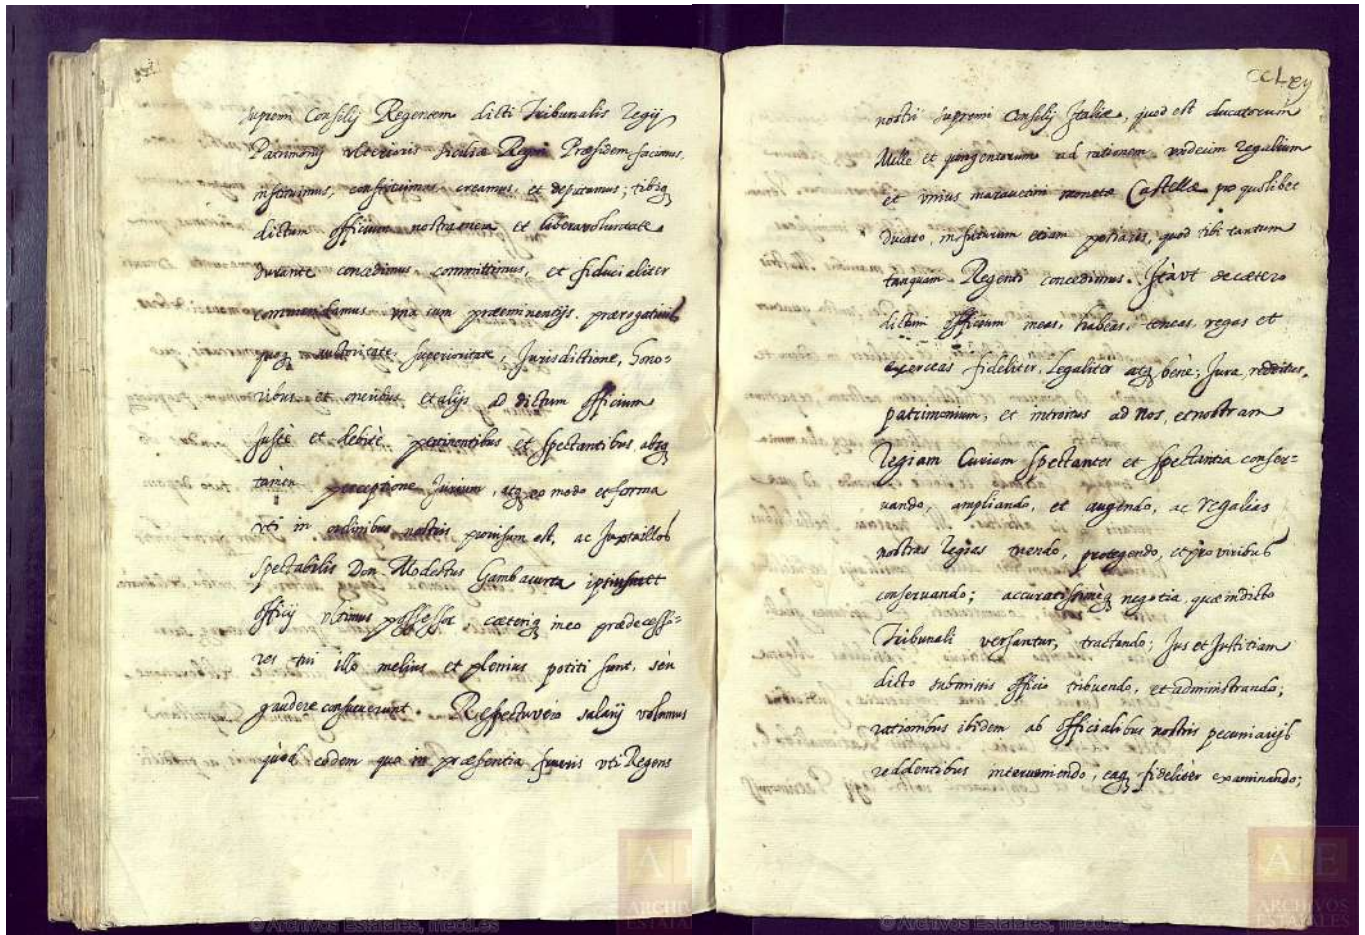 supremi Consilij Regentem dicti Tribunalis Regij
Patrimonij vlterioris Siciliæ Regni Præsidem facimus,
instituimus, constituimus, creamus, et deputamus; tibiq
dictum officium nostra mera et libera voluntate
durante concedimus committimus, et fiducialiter
commendamus vna cum præeminentijs, prærogatiuis
quoq auctoritate, superioritate, Jurisdictione, hono-
ribus, et oneribus et alijs ad dictum officium
Justè et debitè pertinentibus et spectantibus, absq
tamen perceptione Jurium, atq eo modo et forma
vti in ordinibus nostris prouisum est, ac Juxta illos
spectabilis Don Modestus Gambacurta ipsius
officij vltimus possessor, cæteriq in eo prædecesso-
res tui illo melius et plenius potiti sunt, seu
gaudere consueuerunt. Respectu vero salarij volumus
quod eodem quo in præsentia frueris vti Regens
CCLxij
nostri supremi Consilij Italiæ, quod est ducatorum
Mille et quingentorum ad rationem vndecim regalium
et vnius marauetini monetæ Castellæ pro quolibet
ducato, in futurum etiam potiaris, quod tibi tantum
tanquam Regenti concedimus. Ita vt de cætero
dictum officium habeas, teneas, regas et
exerceas fideliter, Legaliter atq bene; Jura, redditus,
patrimonium, et introitus ad Nos, et nostram
Regiam Curiam spectantes et spectantia conser-
uando, ampliando, et augendo, ac regalias
nostras Regias tuendo, protegendo, et pro viribus
conseruando; accuratissimeq negotia, quæ in dicto
Tribunali versantur, tractando; Jus et Justitiam
dicto submissis officio tribuendo, et administrando;
rationibus ibidem ab officialibus nostris pecuniarijs
reddentibus interueniendo, eaq fideliter examinando;
© Archivos Estatales, mecd.es
© Archivos Estatales, mecd.es
ARCHIVOS
ESTATALES